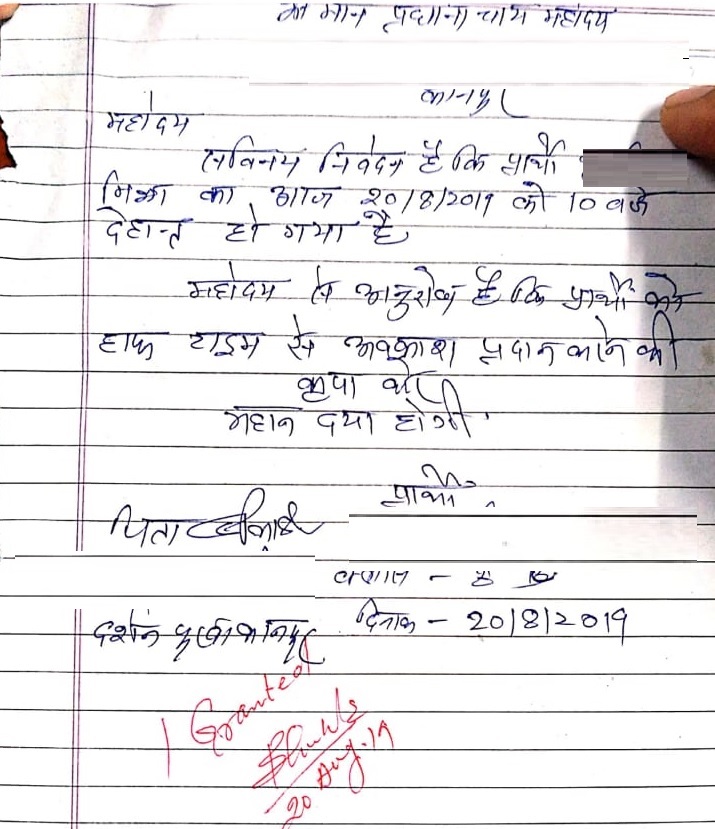 श्रीमान प्रधानाचार्य महोदय
कानपुर
महोदय
सविनय निवेदन है कि प्रार्थी
मिश्रा का आज 20/8/2019 को 10 बजे
देहान्त हो गया है
महोदय से अनुरोध है कि प्रार्थी को
हाफ टाइम से अवकाश प्रदान करने की
कृपा करें
महान दया होगी
प्रार्थी
पिता
कक्षा - 8
दिनांक - 20/8/2019
दर्शन पुरवा कानपुर
Granted
20 Aug.19